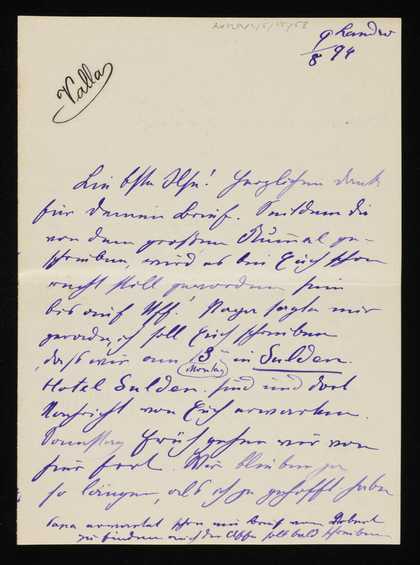 9/8 94
Valla
Liebste Ilse! Herzlichen Dank
für Deinen Brief. Seitdem Du
von dem großen Rummel ge-
schrieben, wird es bei Euch schon
recht still geworden sein
bis auf Uff! Papa sagte mir
gerade, ich soll Euch schreiben
daß wir am 3. in Sulden
(Montag)
Hotel Sulden sind und dort
Nachricht von Euch erwarten.
Sonntag früh gehen wir von
hier fort. Wir bleiben ja
so länger, als ich gehofft habe
Papa erwartet schon ein Brief von Robert
zu finden auch der Affe soll bald schreiben